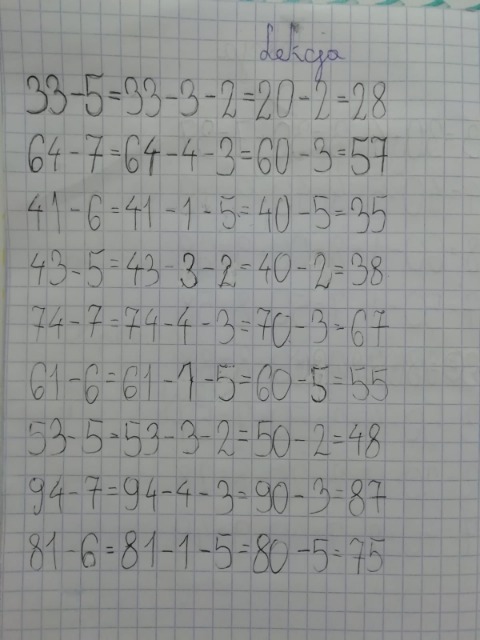 Lekcja
33-5=33-3-2=20-2=28
64-7=64-4-3=60-3=57
41-6=41-1-5=40-5=35
43-5=43-3-2=40-2=38
74-7=74-4-3=70-3=67
61-6=61-1-5=60-5=55
53-5=53-3-2=50-2=48
94-7=94-4-3=90-3=87
81-6=81-1-5=80-5=75